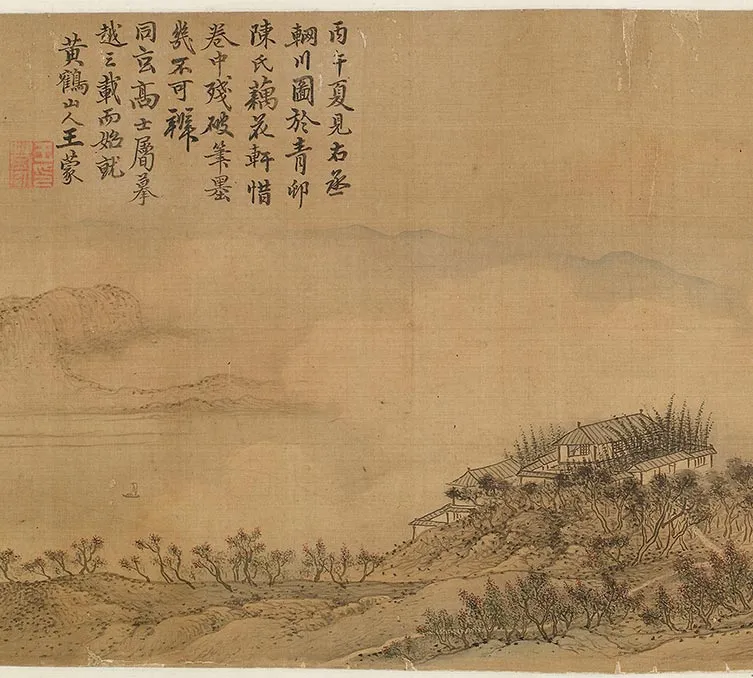 丙午夏見右丞
輞川圖於青卯
陳氏藕花軒惜
卷中殘破筆墨
幾不可辨
同玄髙士屬摹
越三載而始就
黃鶴山人王蒙